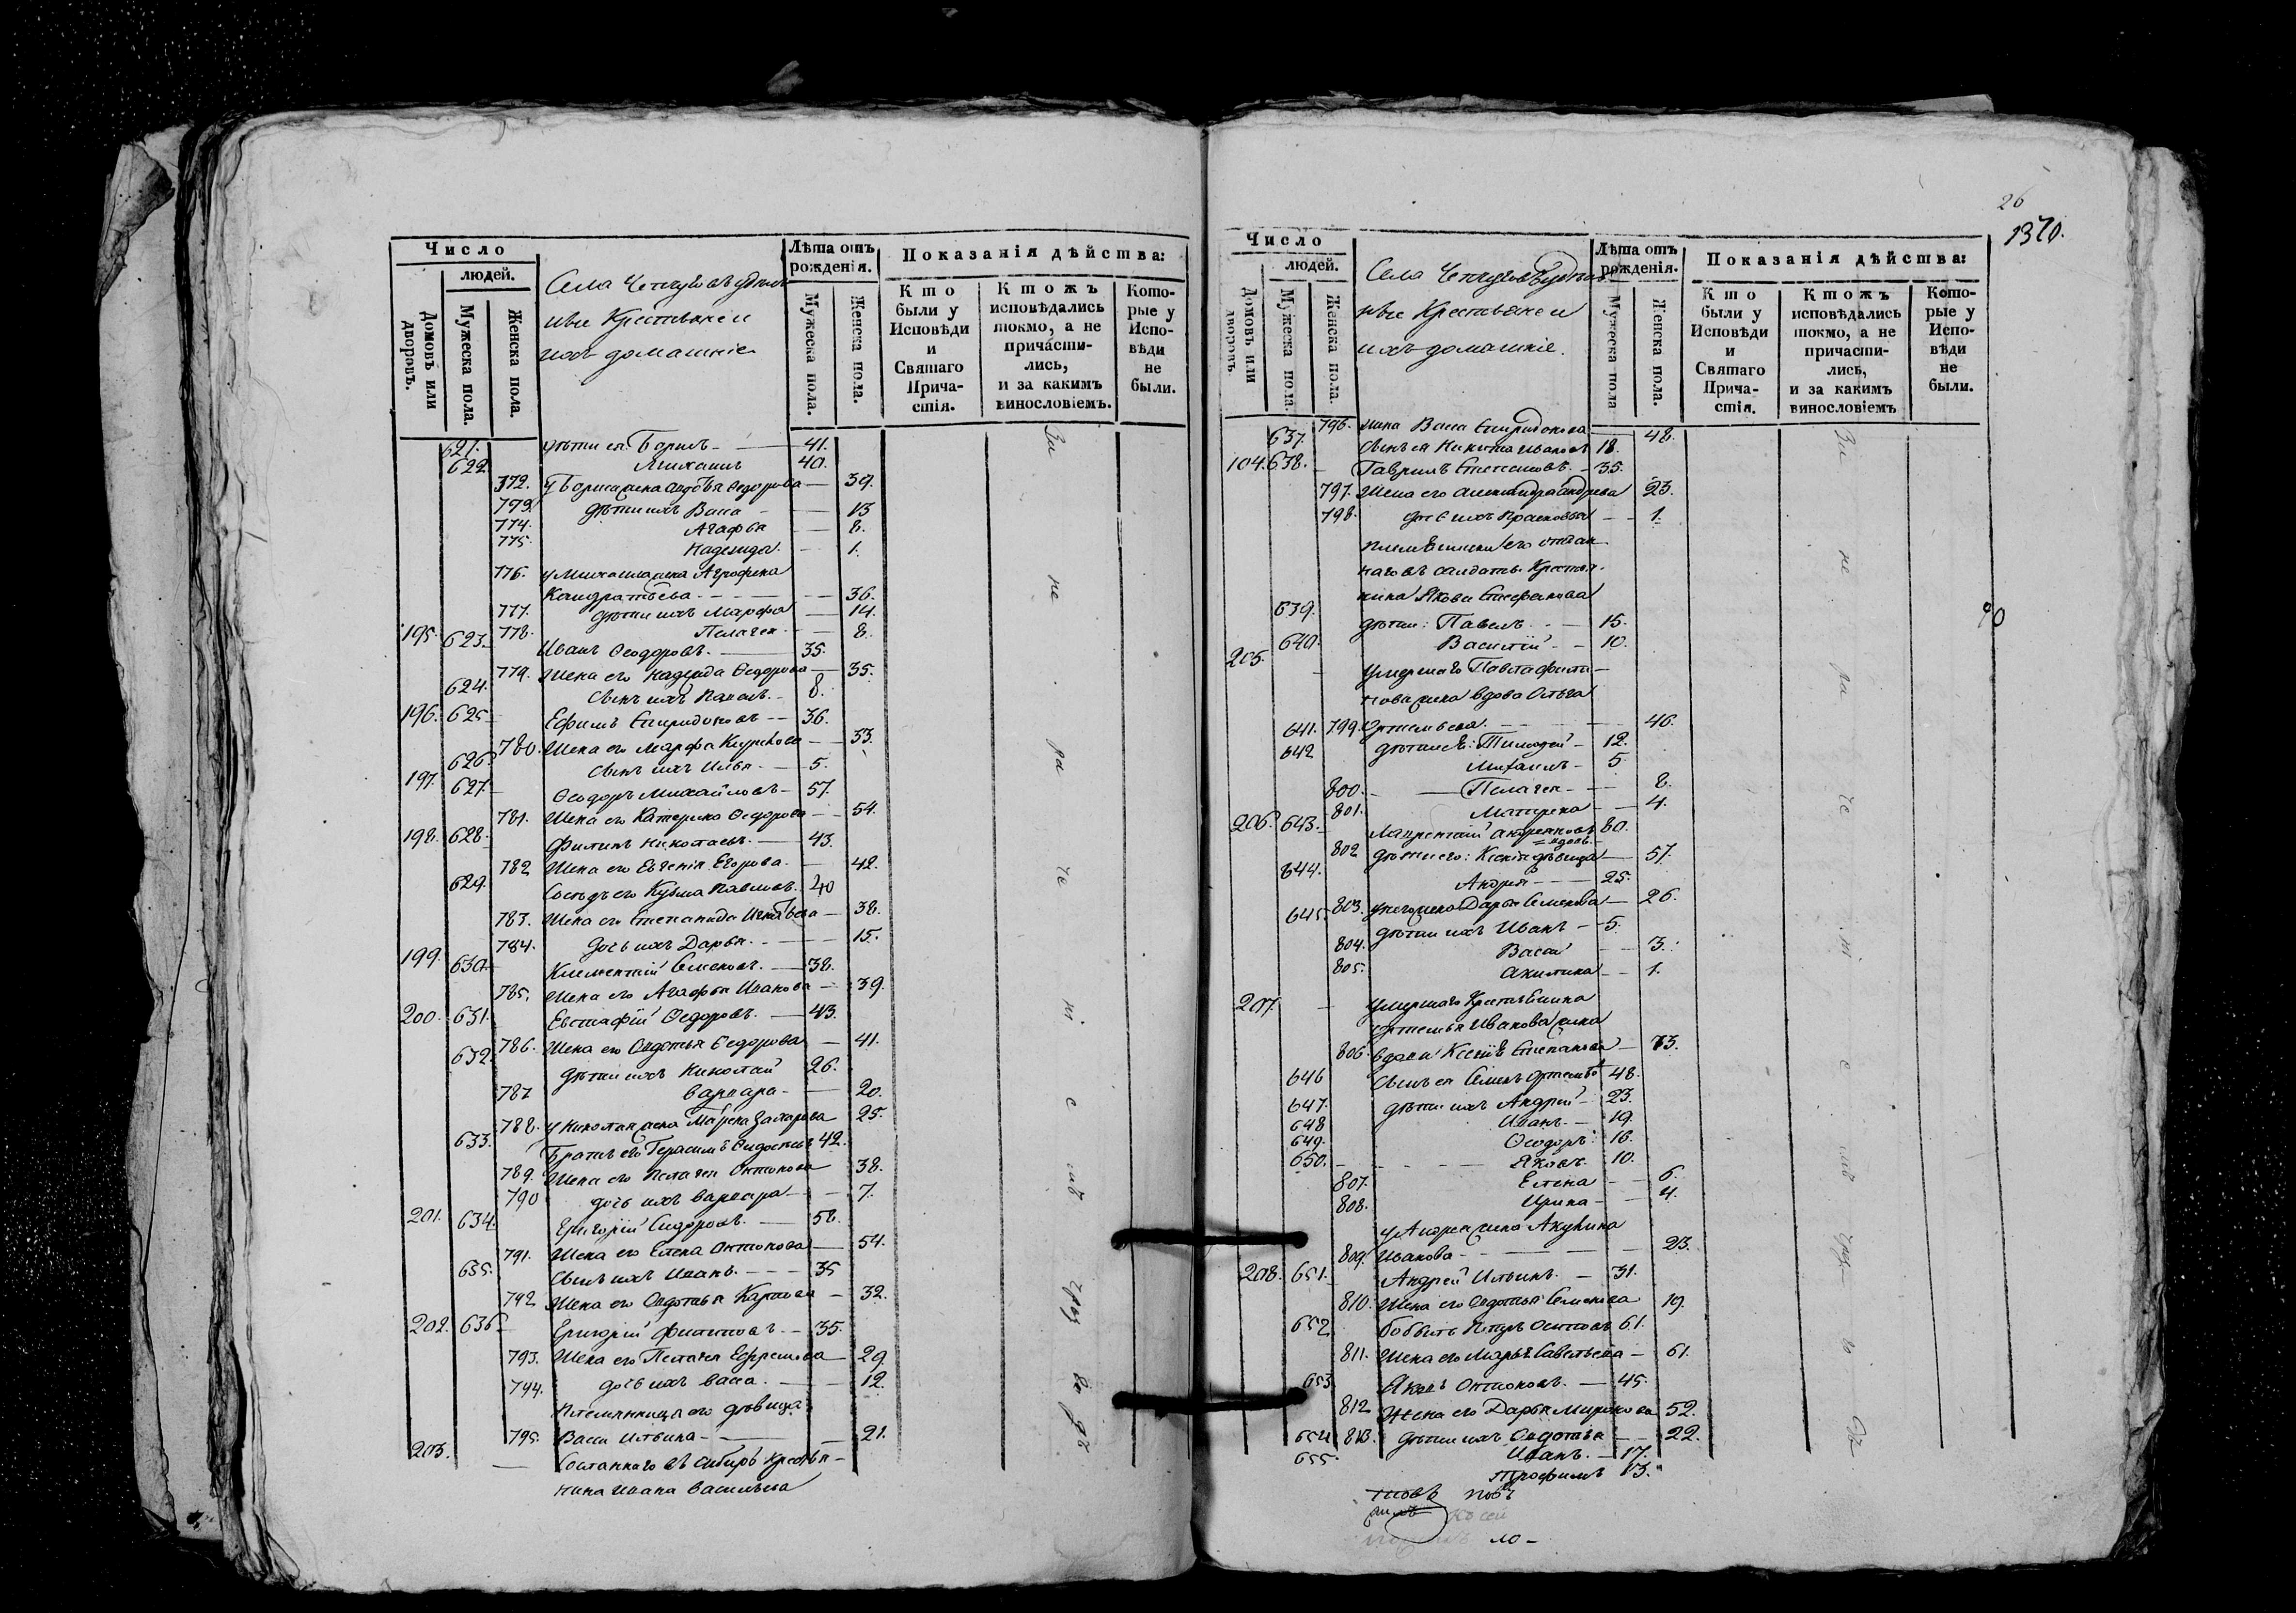 Число
людей.
Домовъ или дворовъ.
Мужеска пола.
Женска пола.
Села
Крестьяне и
ихъ домашніе
Лѣта отъ рожденія.
Мужеска пола.
Женска пола.
Показанія дѣйства:
Кто были у Исповѣди и Святаго Прича-стія.
Ктожъ исповѣдались токмо, а не причасти-лись, и за какимъ винословіемъ.
Кото-рые у Испо-вѣди не были.
621. дѣти ея: Борисъ 41.
622 Михаилъ 40.
772. у Бориса жена Авдотья Ѳедорова 39.
773. дѣти ихъ Васса 13
774. Агафья 8.
775. Надежда 1.
776. у Михаила жена Агрофена
Кандратьева 36.
777. дѣти ихъ Марфа 14.
778. Пелагея 8.
195. 623. Иванъ Ѳеодоровъ. 35.
779. Жена его Надежда Ѳедорова 35.
624. сынъ ихъ Павелъ. 8.
196. 625 Ефимъ Спиридоновъ 36.
780. Жена его Марфа 33.
626. сынъ ихъ Илья. 5.
197. 627. Ѳеодоръ Михайловъ 57.
781. Жена его Катерина Ѳедорова 54.
198. 628. Филипъ Николаевъ. 43.
782 Жена его Евгенія Егорова. 42.
629. Сосѣдъ его Кузма Павловъ. 40
783. Жена его Степанида Игнатьева 38.
784. дочь ихъ Дарья. 15.
199. 630. Климентій Семеновъ. 38.
785. Жена его Агафья Иванова 39.
200. 631. Евстафій Ѳедоровъ. 43.
786. Жена его Овдотья Ѳедорова 41.
632. дѣти ихъ Николай 26.
787 Варвара 20.
788. у Николая жена Марена Захарова 25.
633. Братъ его Герасимъ 42.
789. Жена его Пелагея Онтонова 38.
790 дочь ихъ Варвара 7.
201. 634. Григорій Сидоровъ. 58.
791. Жена его Елена Онтонова 54.
635. сынъ ихъ Иванъ. 35
792 Жена его Овдотья Карпова 32.
202. 636 Григорій Филиповъ. 35.
793. Жена его Пелагея Ефремова 29
794. дочь ихъ Васса. 12.
Племянница его дѣвица
795. Васса Ильина 21.
203. Сосланнаго въ Сибирь кресть-
нина Ивана Васильева
26
1370.
Число
людей.
Домовъ или дворовъ
Мужеска пола.
Женска пола.
Села
Крестьяне и
ихъ домашніе.
Лѣта отъ рожденія.
Мужеска пола
Женска пола.
Показанія дѣйства:
Кто были у Исповѣди и Святаго Прича-стія.
Ктожъ исповѣдались токмо, а не причасти-лись, и за какимъ винословіемъ
Кото-рые у Испо-вѣди не были.
796. жена Васса Спиридонова 48.
637. сынъ ея Никита Ивановъ 18.
104. 638. Гаврилъ Степановъ. 35.
797. Жена его Александра Андреева 23.
798. дочь ихъ Прасковья 1.
его отдан-
наго въ салдаты Крестья-
нина Якова Стефанова
639. дѣти: Павелъ 15.
640. Василій 10.
205. умершаго Павла
жена вдова Ольга
641. 799. Артемьева. 46.
642 дѣти ея: Тимофей 12.
Михаилъ 5.
800. Пелагея 8.
801. Матрена 4.
206. 643. Лаврентій 80.
802 дѣти его: Ксенія дѣвица 57.
644. Андрей 25.
645. 803. у него жена Дарья Семенова 26.
дѣти ихъ Иванъ 5.
804. Васса 3.
805. Акилина 1.
207. умершаго Крестьянина
Артемья Иванова жена
806. вдова Ксенія Степанова 73.
646 сынъ ея Семенъ Артемьевъ 48.
647. дѣти ихъ Андрей 23.
648 Иванъ. 19.
649. Ѳеодоръ 16.
650. Яковъ. 10.
807. Елена 6.
808. Ирина 4.
у Андрея жена Акулина
809. Иванова 23.
208. 651. Андрей Ильинъ. 31.
810. Жена его Овдотья Семенова 19.
652 бобыль Петръ Осиповъ 61.
811. Жена его Марья Савельева 61.
653 Яковъ Онтоновъ. 45.
812 Жена его Дарья Миронова 52.
654 813. дѣти ихъ Овдотья 22.
655. Иванъ. 17.
Трофимъ 13.